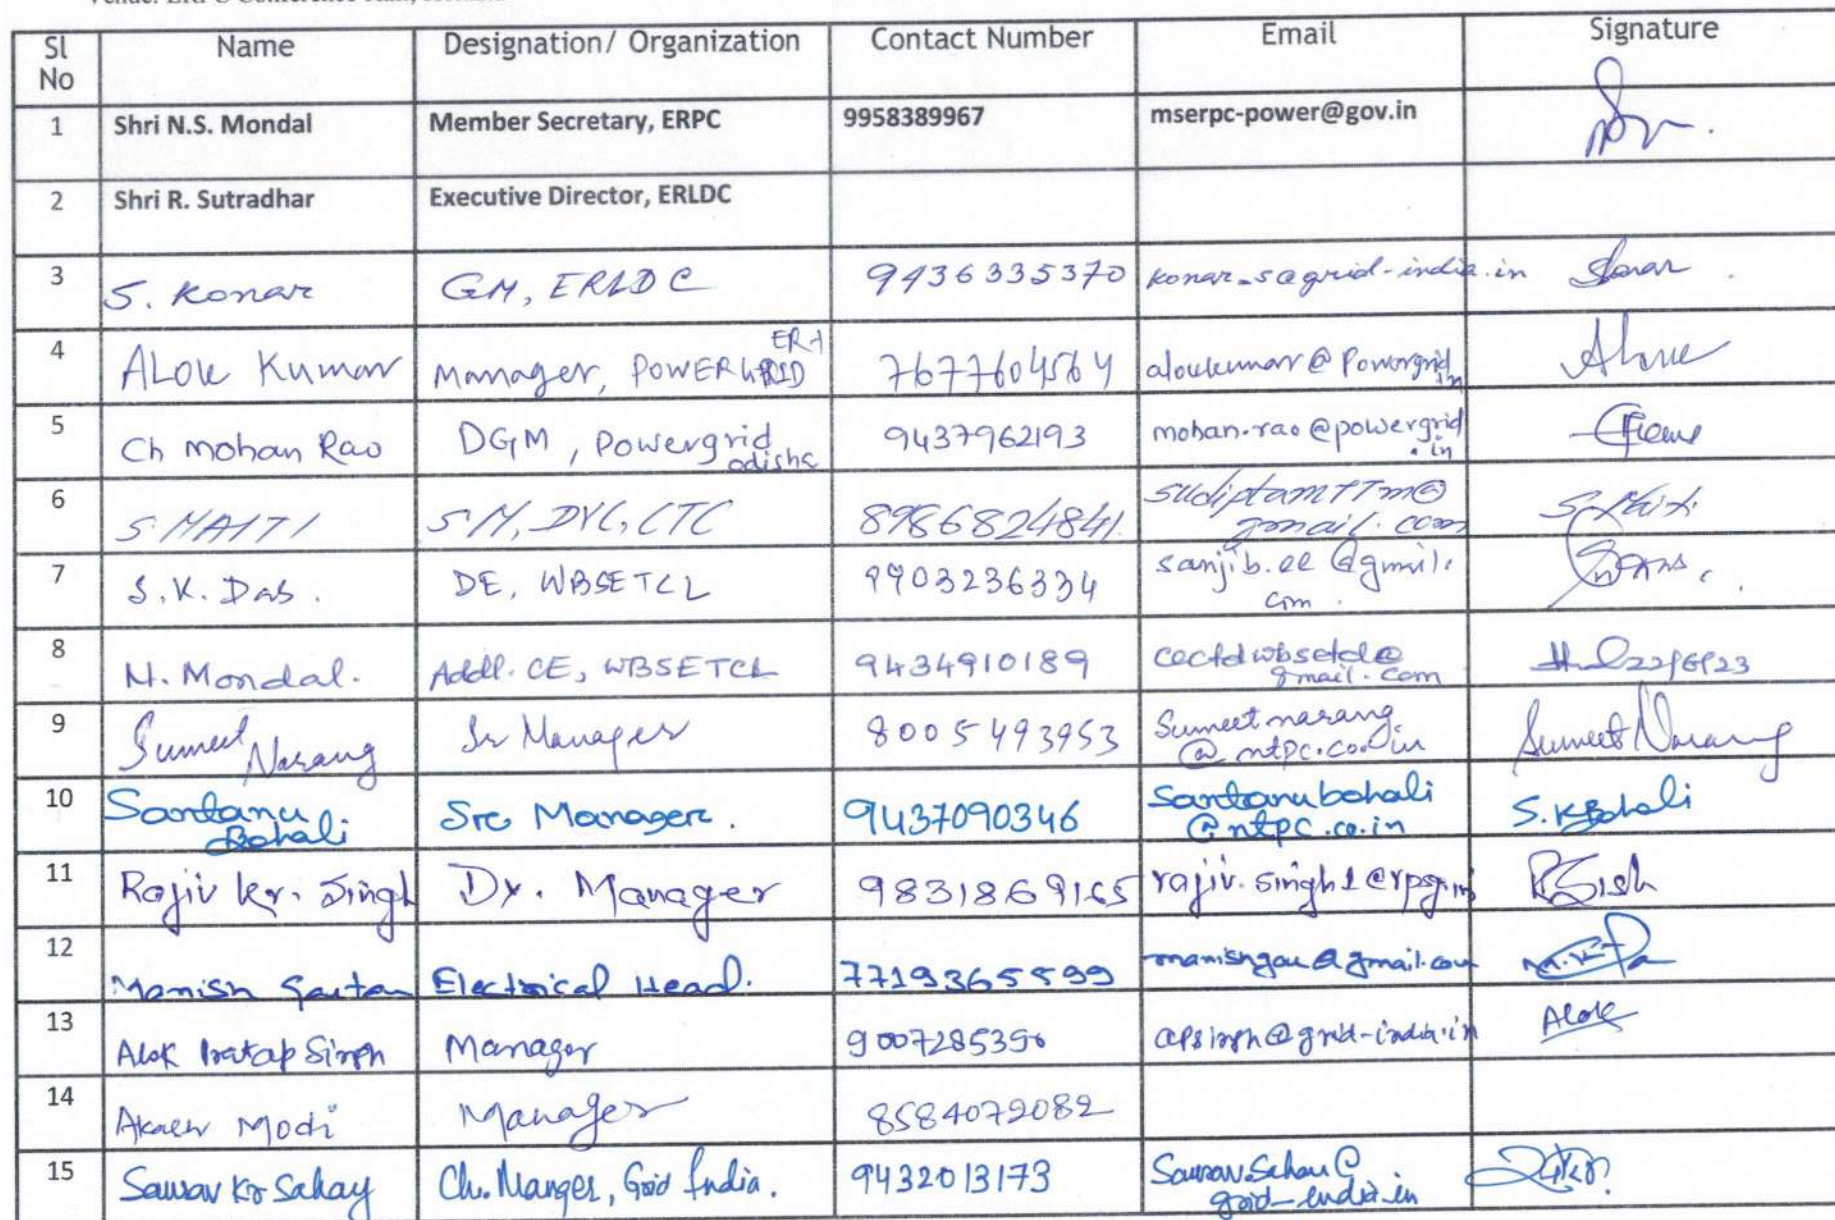 Sl No Name Designation/ Organization Contact Number Email Signature
1 Shri N.S. Mondal Member Secretary, ERPC 9958389967 mserpc-power@gov.in
2 Shri R. Sutradhar Executive Director, ERLDC
3 S. Konar GM, ERLDC 9436335370 konar_s@grid-india.in
4 ALOK Kumar Manager, POWERGRID ER-1 7677604564 alokkumar@Powergrid.in
5 Ch Mohan Rao DGM, Powergrid odisha 9437962193 mohan.rao@powergrid.in
6 S MAITI SM, DVC, CTC 8986824841 sudiptamTTm@gmail.com
7 S.K. Das. DE, WBSETCL 9903236334 sanjib.ee@gmail.com.
8 N. Mondal. Addl. CE, WBSETCL 9434910189 cectdwbsetcl@gmail.com 22/6/23
9 Sumeet Narang Sr Manager 8005493953 Sumeetnarang@ntpc.co.in Sumeet Narang
10 Santanu Bohali Sr. Manager. 9437090346 Santanubohali@ntpc.co.in S.K Bohali
11 Rajiv Kr. Singh Dy. Manager 9831869165 rajiv.singh1@rpsg.in
12 Manish Gautam Electrical Head. 7719365599 manishgau@gmail.com
13 Alok Pratap Singh Manager 9007285390 apsingh@grid-india.in Alok
14 Modi Manager 8584072082
15 Saurav Kr Sahay Ch. Manger, Grid India. 9432013173 Saurav.Sahay@grid-india.in